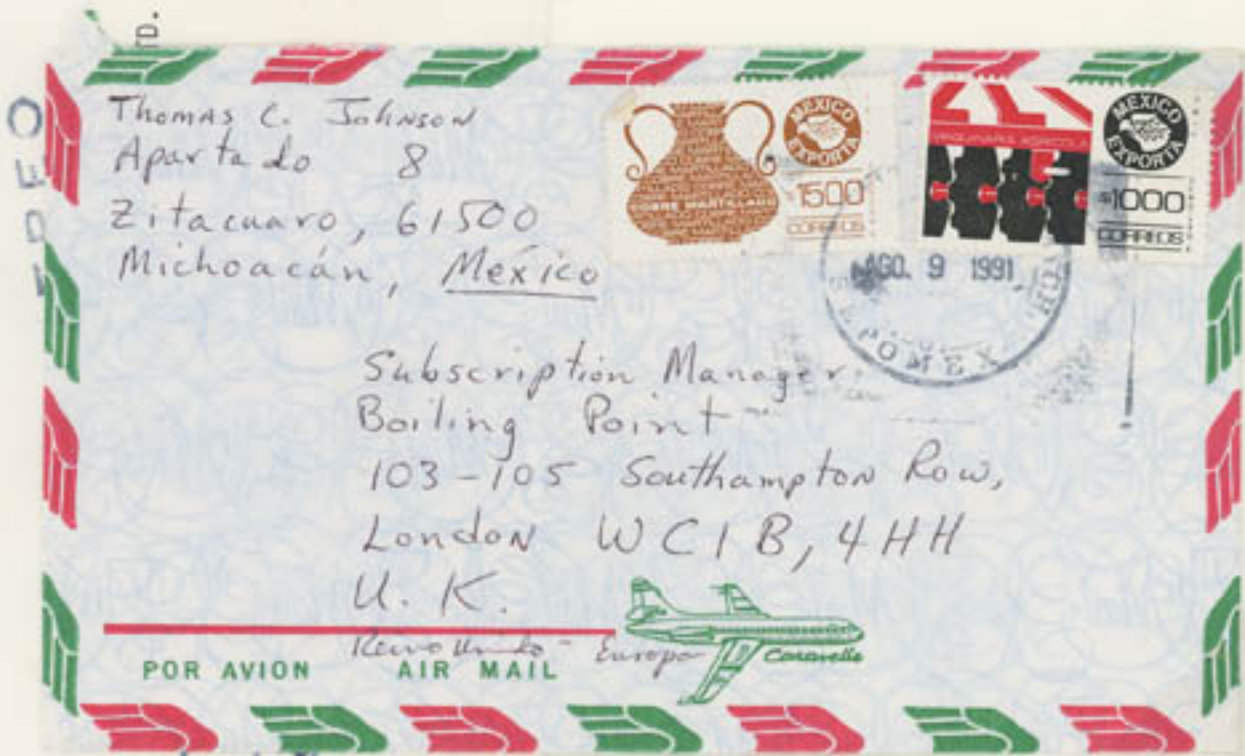 TD.
Thomas C. Johnson
Apartado 8
Zitacuaro, 61500
Michoacán, México
COBRE MARTILLADO
MEXICO EXPORTA
$1500
CORREOS
MAQUINARIA AGRICOLA
MEXICO EXPORTA
$1000
CORREOS
AGO. 9 1991
MEX
Subscription Manager
Boiling Point
103-105 Southampton Row,
London WC1B, 4HH
U. K.
Reino Unido - Europa
POR AVION AIR MAIL
Caravelle